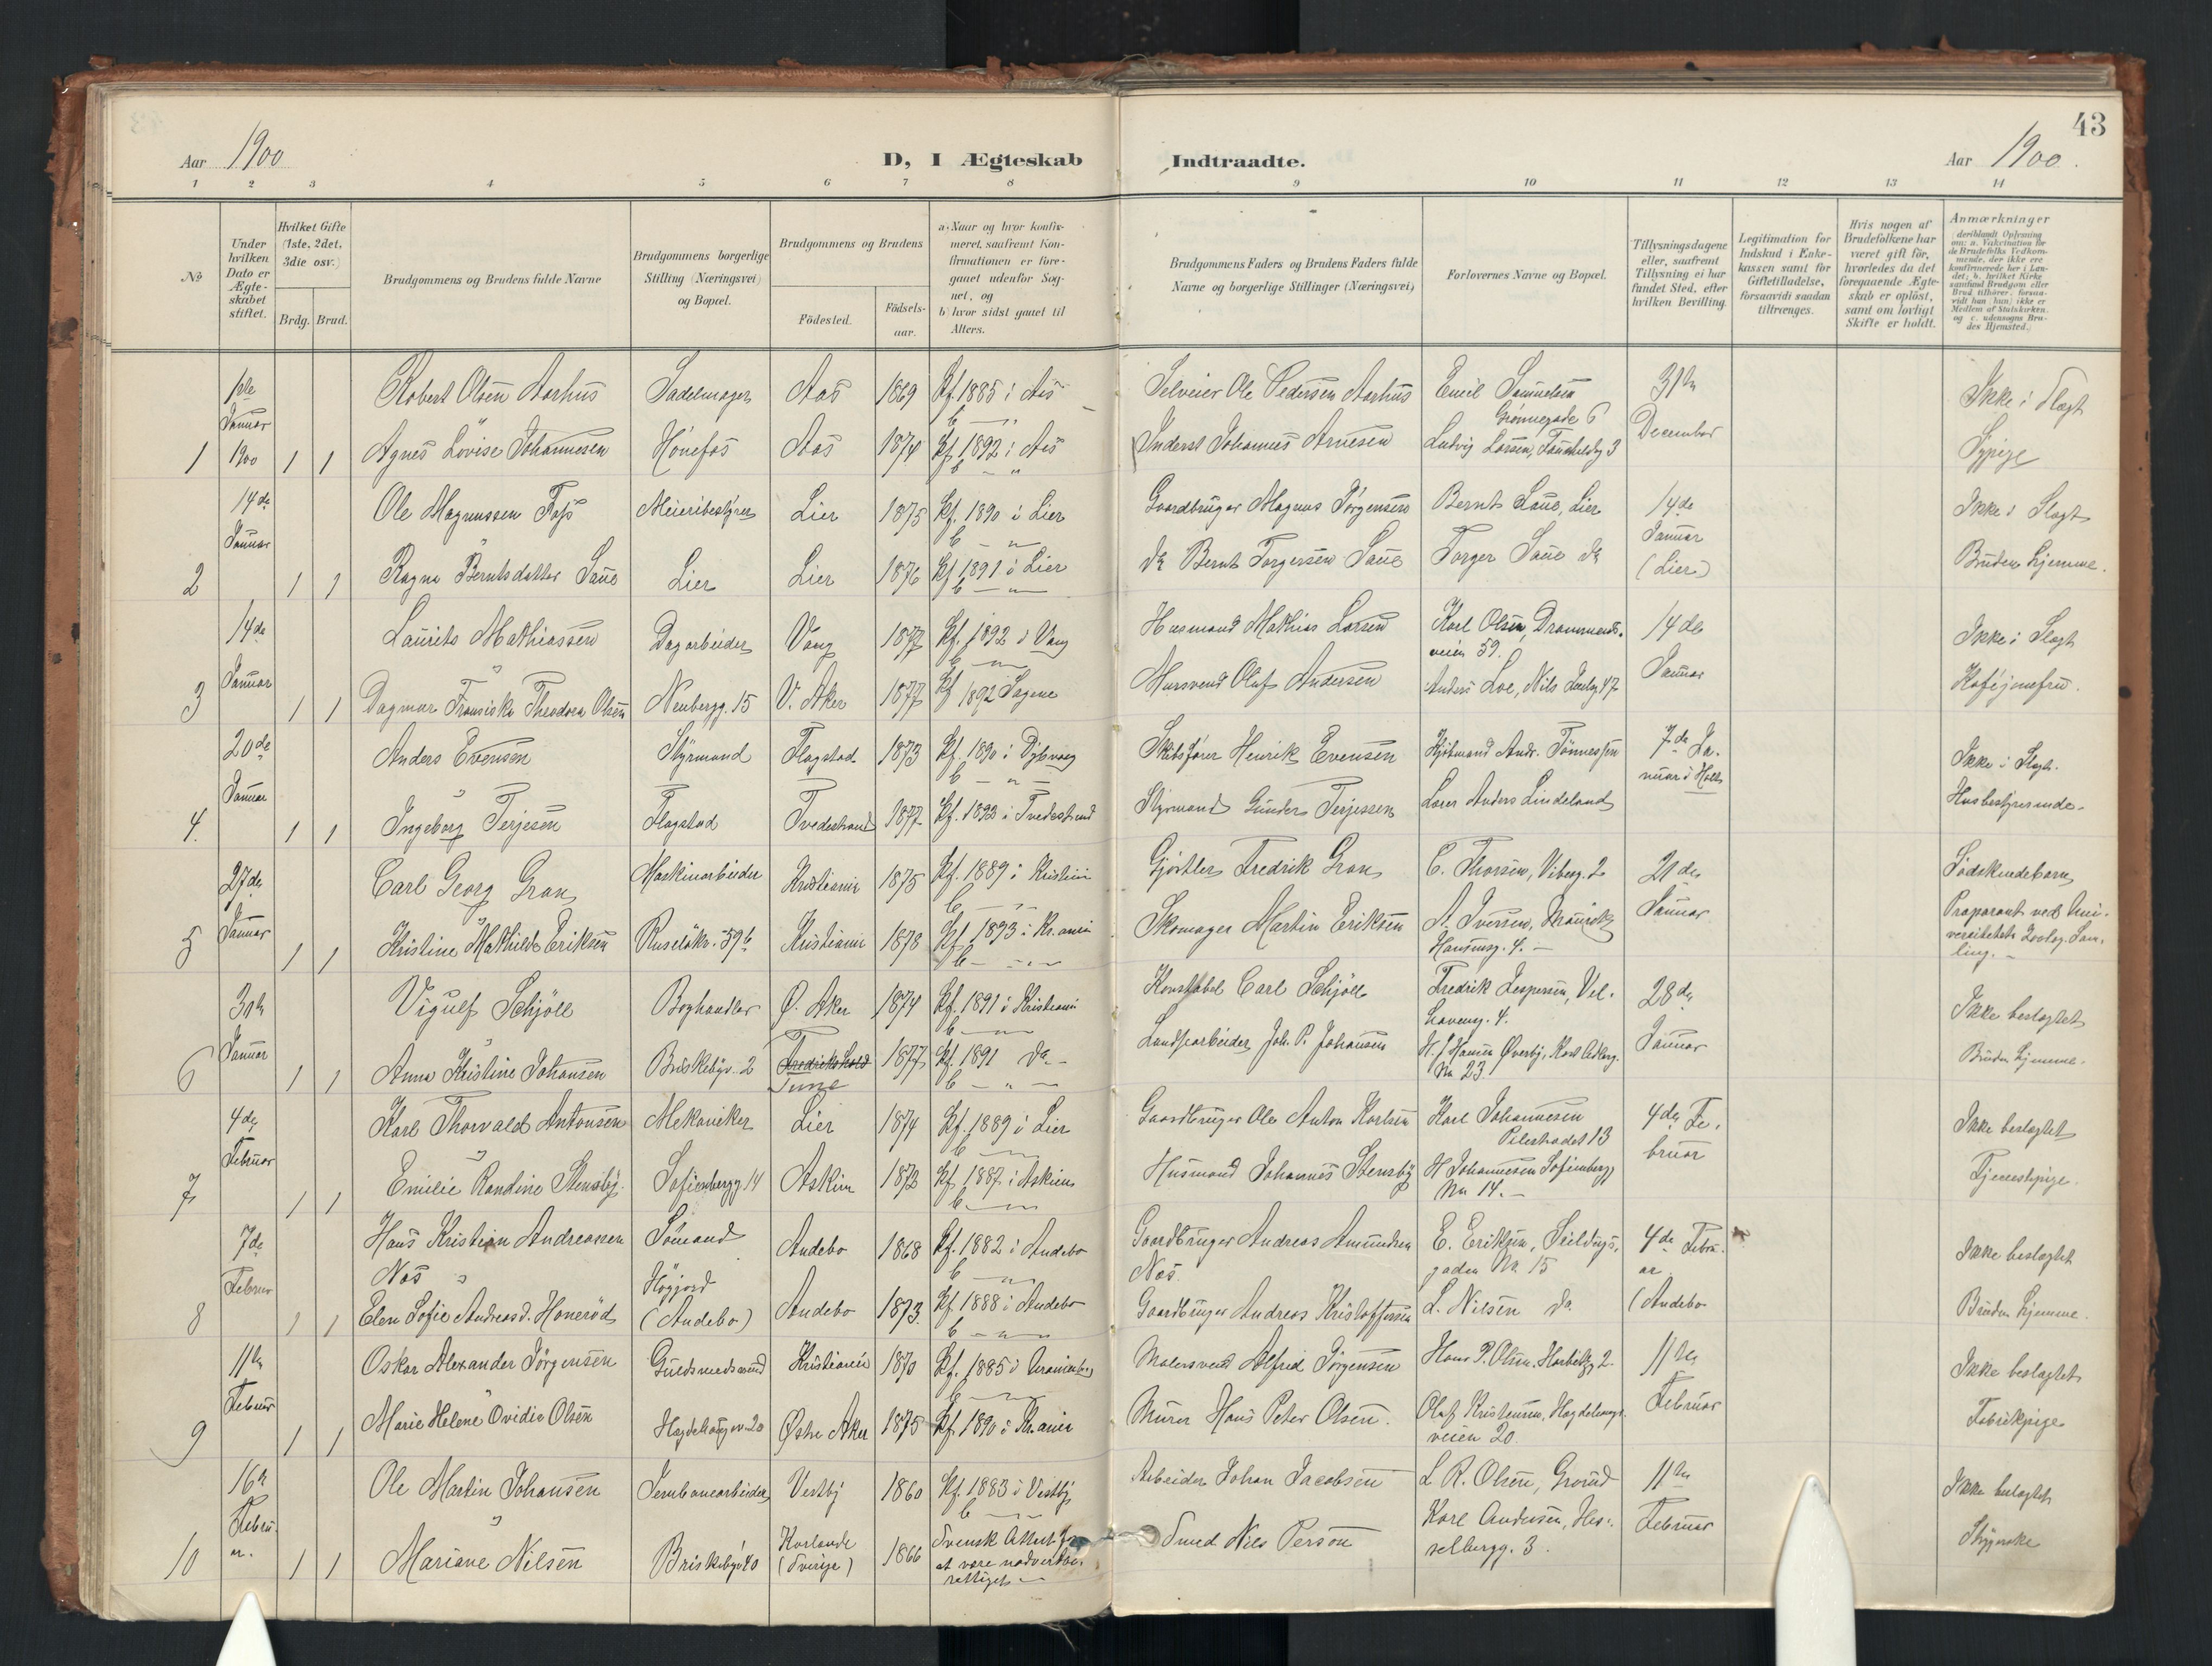 43
Aar 1900
D, I Ægteskab Indtraadte.
Aar 1900.
1 2 3 4 5 6 7 8 9 10 11 12 13 14
No
Under
hvilken
Dato er
Ægte-
skabet
stiftet.
Hvilket Gifte
(1ste, 2det,
3die osv.)
Brdg. Brud.
Brudgommens og Brudens fulde Navne
Brudgommens borgerlige
Stilling (Næringsvei)
og Bopæl.
Brudgommens og Brudens
Födested.
Födsels-
aar.
a) Naar og hvor konfir-
meret, saafremt Kon-
firmationen er fore-
gaaet udenfor Sog-
net, og
b) hvor sidst gaaet til
Alters.
Brudgommens Faders og Brudens Faders fulde
Navne og borgerlige Stillinger (Næringsvei)
Forlovernes Navne og Bopæl.
Tillysningsdagene
eller, saafremt
Tillysning ei har
fundet Sted, efter
hvilken Bevilling.
Legitimation for
Indskud i Enke-
kassen samt for
Giftetilladelse,
forsaavidt saadan
tiltrænges.
Hvis nogen af
Brudefolkene har
været gift för,
hvorledes da det
foregaaende Ægte-
skab er oplöst,
samt om lovligt
Skifte er holdt.
Anmærkninger
(deriblandt Oplysning
om: a. Vakcination for
de Brudefolks Vedkom-
mende, der ikke ere
konfirmerede her i Lan-
det; b. hvilket Kirke-
samfund Brudgom eller
Brud tilhörer, forsaa-
vidt han (hun) ikke er
Medlem af Statskirken,
og c. udensogns Bru-
des Hjemsted.)
1 1ste Januar 1900 1 1
Robert Olsen Aarhus Sadelmager Aas 1869 Kf. 1885 i Aas Selveier Ole Pedersen Aarhus Emil Samuelsen Grönnegade 6 31te December Ikke i Slægt
Agnes Lovise Johannesen Hönefos Aas 1874 Kf. 1892 i Aas Inderst Johannes Arnesen Ludvig Larsen, 3 Sypige
2 14de Januar 1 1
Ole Magnussen Foss Meieribestyrer Lier 1875 Kf. 1890 i Lier Gaardbruger Magnus Jörgensen Bernt Saue, Lier 14de Januar (Lier) Ikke i Slægt
Ragna Berntsdatter Saue Lier Lier 1876 Kf. 1891 i Lier do Bernt Torgersen Saue Torger Saue do Bruden hjemme.
3 14de Januar 1 1
Laurits Mathiassen Dagarbeider Vang 1877 Kf. 1892 i Vang Husmand Mathias Larsen Karl Olsen, Drammens-
veien 59. 14de Januar Ikke i Slægt
Dagmar Fransiska Theodora Olsen Neubergg. 15 V. Aker 1877 Kf 1892 Sagene Mursvend Olaf Andersen Anders Loe, Nils 47 Kaféjomfru.
4. 20de Januar 1 1
Anders Evensen Styrmand Flagstad 1873 Kf. 1890 i Dybvaag Skibsförer Henrik Evensen Kjöbmand Andr. Tönnessen 7de Ja-
nuar i Holt Ikke i Slægt.
Ingeborg Terjesen Flagstad Tvedestrand 1877 Kf. 1893 i Tvedestrand Styrmand Gunder Terjessen Lærer Anders Lindeland Husbestyrerinde.
5 27de Januar 1 1
Carl Georg Gran Maskinarbeider Kristiania 1875 Kf. 1889 i Kristiania Gjörtler Fredrik Gran C. Thorsen, Vibesg. 2 21de Januar Södskendebarn
Kristine Mathilde Eriksen Ruselökv. 59b Kristiania 1878 Kf. 1893 i Kr.ania Skomager Martin Eriksen A. Iversen, Mauritz
Hansensg. 4. Præparant ved Uni-
versitetets Zoolog. Sam-
ling.
6 31te Januar 1 1
Vigulf Schjöll Boghandler Ø. Aker 1874 Kf. 1891 i Kristiania Konstabel Carl Schjöll Fredrik Jespersen, Vel-
havensg. 4. 28de Januar Ikke beslægtet
Anna Kristine Johansen Briskebyv. 2 Fredrikshald Tune 1877 Kf. 1891 do Landsearbeider Joh. P. Johansen H. J. Hansen Øverby,
No 23 Bruden hjemme.
7 4de Februar 1 1
Karl Thorvald Antonsen Mekaniker Lier 1874 Kf. 1889 i Lier Gaardbruger Ole Anton Karlsen Karl Johannesen
Pilestrædet 13 4de Fe-
bruar Ikke beslægtet
Emilie Randine Stensby Sofienbergg 14 Askim 1872 Kf. 1887 i Askim Husmand Johannes Stensby H Johannesen Sofienbergg
No 14. Tjenestepige.
8 7de Februar 1 1
Hans Kristian Andreassen
Næs Sömand Andebo 1868 Kf. 1882 i Andebo Gaardbruger Andreas Amundsen
Næs. E. Eriksen, Seildugs-
gaden No 15 4de Febru-
ar (Andebo Ikke beslægtet
Elen Sofie Andreasd. Honeröd Högjord
(Andebo) Andebo 1873. Kf. 1888 i Andebo Gaardbruger Andreas Kristoffersen L. Nilsen do. Bruden hjemme.
9 11te Februar 1 1
Oskar Alexander Jörgensen Guldsmedsvend Kristiania 1870 Kf. 1885 i Uranienborg Malersvend Alfred Jörgensen Hans P. Olsen, Harbitzg 2 11te Februar Ikke beslægtet
Marie Helene Ovidie Olsen Hegdehaugsv. 20 Østre Aker 1875 Kf. 1890 i Kr.ania Murer Hans Peter Olsen. Olaf Kristensen, Hegdehaugs-
veien 20. Fabrikpige
10 16de Febru-
ar. 1 1
Ole Martin Johansen Jernbanearbeider Vestby 1860 Kf. 1883 i Vestby Arbeider Johan Jacobsen L R. Olsen, Grorud 11te Februar Ikke beslægtet
Mariane Nilsen Briskebyv 40 (Sverige) 1866 Svensk Attest for
at være nadverbe-
rettiget Smed Nils Person Karl Andersen, Hes-
selbergg. 3.